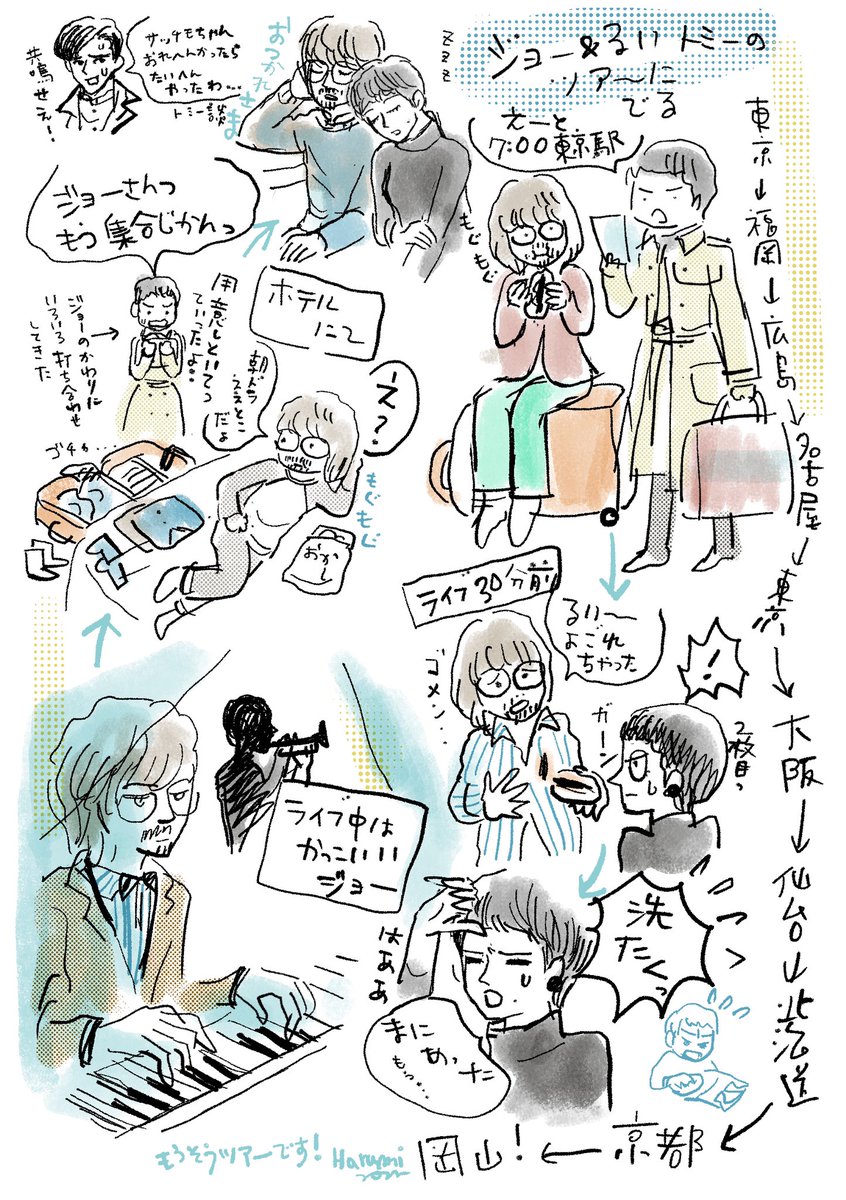 ジョー&るい トミーの
ツアーに
でる
えーと
7:00東京駅
もぐもぐ
東京→福岡→広島→名古屋→東京→大阪→仙台→北海道
→京都→岡山!
ライブ30分前
るい〜
よごれ
ちゃった
ゴメン…
ガーン
!
2枚目っ
洗
たくっ
はああ
まに
あった
もっ…
ライブ中は
かっこいい
ジョー
ホテル
にて
ジョーさんっ
もう集合じかんっ
ジョーのかわりに
いろいろ打ち合わせ
してきた
用意しといてっ
ていったよ…
え?
朝ドラ
ええとこ
だよ
もぐもぐ
おかし
ゴチャ…
おつかれさま
zzz
サッチモちゃん
おれへんかったら
たいへん
やったわ…
トミー談
共鳴せえ!
もうそうツアーです!
Harumi
2022